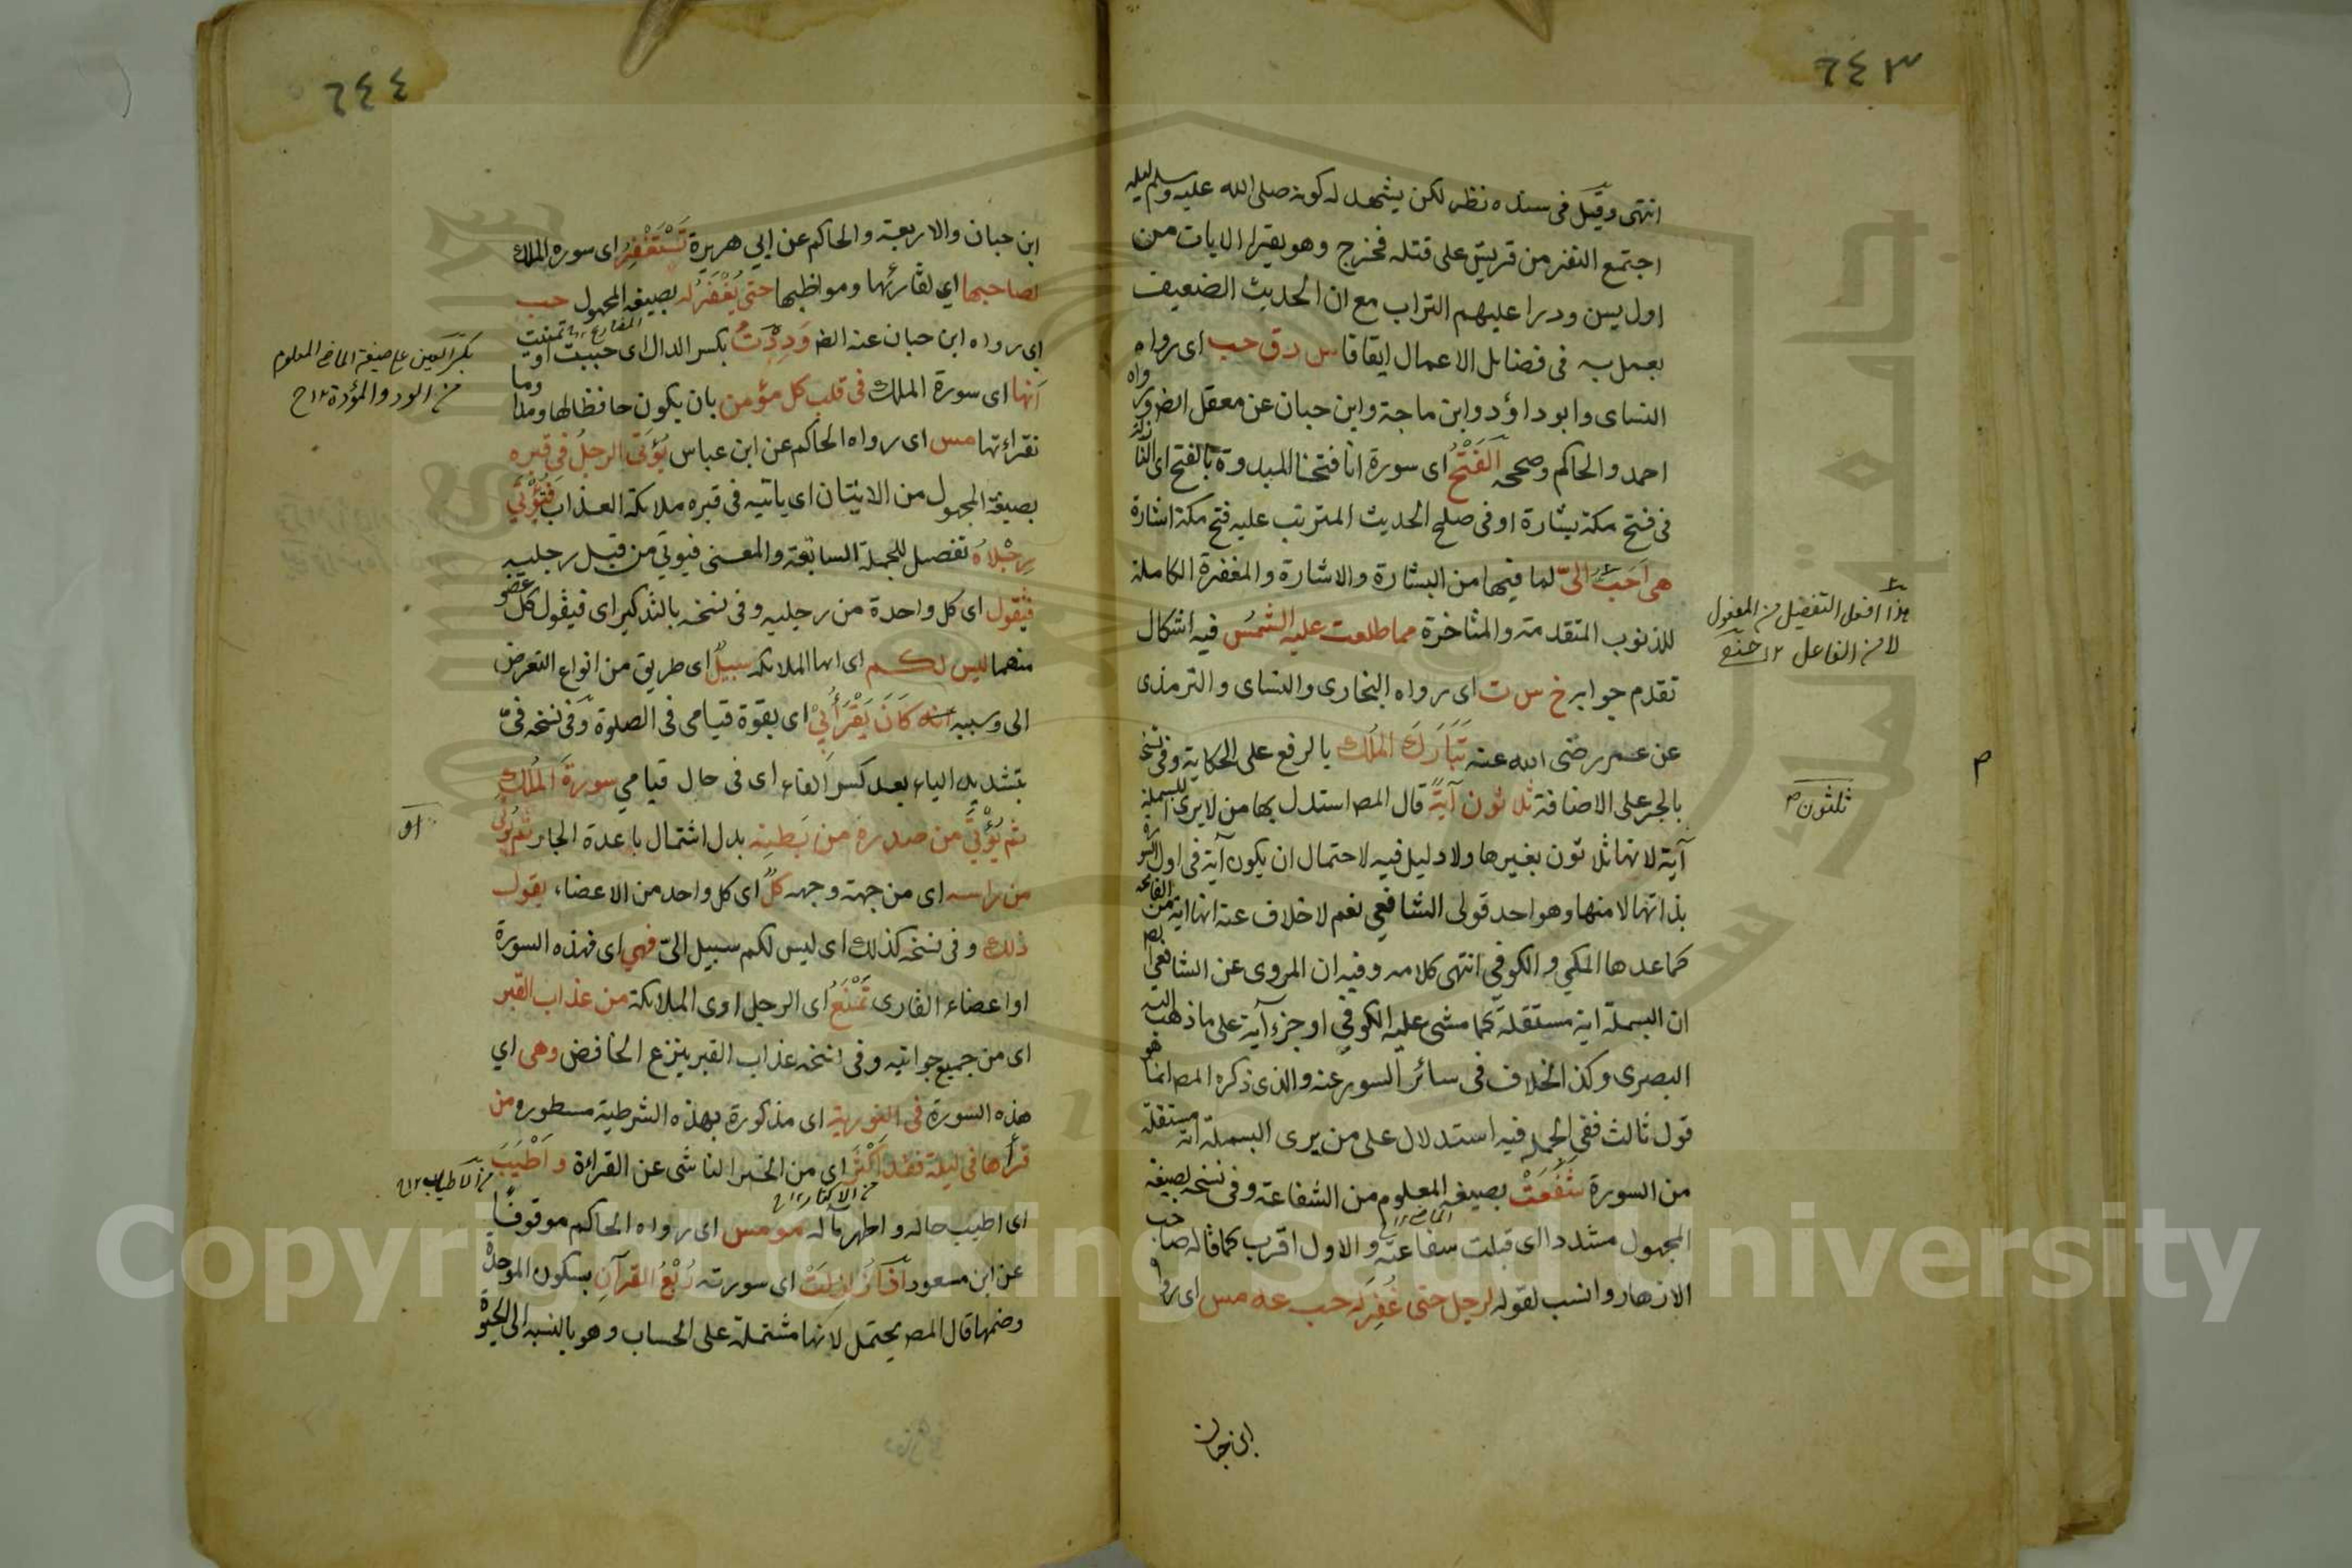 ٦٤٣
انتهى وقيل فى سنده نظر لكن يشهد له كونه صلى الله عليه وسلم ليلة
اجتمع النفر من قريش على قتله فخرج وهو يقرا الايات من
اول يس ودرا عليهم التراب مع ان الحديث الضعيف
يعمل به فى فضايل الاعمال اتفاقا س د ق حب اى رواه
النساى وابو داؤد وابن ماجة وابن حبان عن معقل ايضا ورواه
احمد والحاكم وصححه اَلْفَتْحُ اى سورة انا فتحنا المبدوة بالفتح اى
فى فتح مكة بشارة او فى صلح الحديث المترتب عليه فتح مكة اشارة
هى اَحَبُّ الىّ لما فيها من البشارة والاشارة والمغفرة الكاملة
للذنوب المتقدمة والمتاخرة مما طلعت عليه الشمسُ فيه اشكال
تقدم جوابه خ س ت اى رواه البخارى والنساى والترمذى
عن عمر رضى الله عنه تَبَارَكَ المُلك بالرفع على الحكاية وفى نسخة
بالجر على الاضافة ثلاثون آيةً قال المص استدل بها من لا يرى البسملة
آية لانها ثلاثون بغيرها ولا دليل فيه لاحتمال ان يكون آية فى اول السورة
بذاتها لا منها وهو احد قولى الشافعي نعم لا خلاف عنه انها اية من الفاتحة
كما عدها المكي والكوفي انتهى كلامه وفيه ان المروى عن الشافعي
ان البسملة اية مستقلة كما مشى عليه الكوفي او جزء آية على ما ذهب اليه
البصرى وكذا الخلاف فى سائر السور عنه والذى ذكره المص انما هو
قول ثالث ففى الجملة فيه استدلال على من يرى البسملة اية مستقلة
من السورة شَفَعَتْ بصيغة المعلوم من الشفاعة وفى نسخة بصيغة
المجهول مشددا اى قبلت شفاعته والاول اقرب كما قاله صاحب
الازهار وانسب لقوله لرجل حتى غُفِرَ له حب عه مس اى رواه
ابن حبان
هذا افعل التفضيل من المفعول
لا من الفاعل ١٢
ثلثون
م
٦٤٤
ابن حبان والاربعة والحاكم عن ابي هريرة تَسْتَغْفِرُ اى سورة الملك
لصاحبها اي لقارئها ومواظبها حتى يُغْفَرَ له بصيغة المجهول حب
اي رواه ابن حبان عنه ايضا وَدِدْتُ بكسر الدال اى حببت او تمنيت
اَنها اى سورة الملك فى قلب كل مؤمن بان يكون حافظا لها ومداوما
لقراءتها مس اى رواه الحاكم عن ابن عباس يُؤتَى الرجلُ فى قبره
بصيغة المجهول من الاتيان اى ياتيه فى قبره ملائكة العذاب فَتُؤتَى
رِجْلاهُ تفصيل للجملة السابقة والمعنى فيوتى من قبل رجليه
فتقول اى كل واحدة من رجليه وفى نسخة بالتذكير اى فيقول كل عضو
منهما ليس لكم اى ايها الملائكة سبيلٌ اى طريق من انواع التعرض
الى وسببه انه كَانَ يَقْرَأُ بِيْ اى بقوة قيامى فى الصلوة وفى نسخة فىّ
بتشديد الياء بعد كسر الفاء اى فى حال قيامي سورةَ المُلكِ
ثم يُؤْتَى من صدره من بَطنِه بدل اشتمال باعدة الجار ثم يُؤتى
من راسه اى من جهة وجهه كلٌ اى كل واحد من الاعضاء يقول
ذلك وفى نسخة كذلك اى ليس لكم سبيل الىّ فهي اى فهذه السورة
او اعضاء القارى تَمْنَعُ اى الرجل اوى الملائكة من عذاب القبر
اى من جميع جوانبه وفى نسخة عذاب القبر بنزع الخافض وهى اي
هذه السورة فى التورية اى مذكورة بهذه الشرطية مسطورة من
قرأها فى ليلة فقد اَكْثَرَ اى من الخير الناشى عن القراءة واَطْيَبَ
اى اطيب حاله واطهر ماله مو مس اى رواه الحاكم موقوفًا
عن ابن مسعود اذا زُلزِلَتْ اى سورته رُبْعُ القرآنِ بسكون الموحدة
وضمها قال المص يحتمل لانها مشتملة على الحساب وهو بالنسبة الى الحيوة
بكسر العين على صيغة الماضى المعلوم
من الود والمؤدة ١٢
او
من الاطياب ١٢
من الاكثار ١٢
Copyright © King Saud University